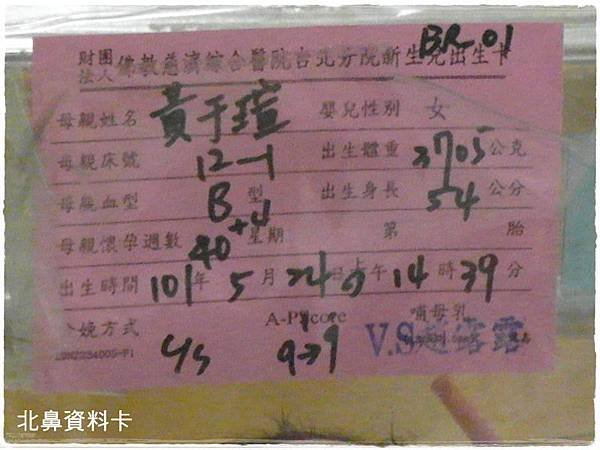 BR-01
財團法人 佛教慈濟綜合醫院台北分院新生兒出生卡
母親姓名 黃于瑄 嬰兒性別 女
母親床號 12-1 出生體重 3705 公克
母親血型 B 型 出生身長 54 公分
母親懷孕週數 40+4 星期 第 胎
出生時間 101年 5月 24日 午 14時 39分
分娩方式 A-P score 哺母乳
c/s 9→9 V.S
北鼻資料卡